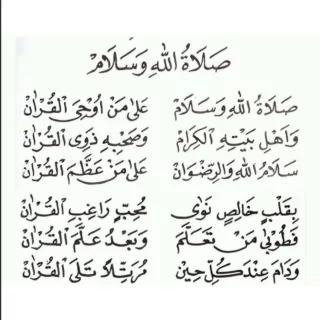 صَلَاةُ اللهِ وَسَلَامْ
صَلَاةُ اللهِ وَسَلَامْ عَلىٰ مَنْ اُوْحِيَ الْقُرْاٰنْ
وَاَهْلِ بَيْتِهِ الْكِرَامْ وَصَحْبِهِ ذَوِى الْقُرْاٰنْ
سَلَامُ اللهِ وَالرِّضْوَانْ عَلىٰ مَنْ عَظَّمَ الْقُرْاٰنْ
بِقَلْبٍ خَالِصٍ نَوٰى مُحِبٍّ رَاغِبِ الْقُرْاٰنْ
فَطُوْبىٰ مَنْ تَعَلَّمَ وَبَعْدُ عَلَّمَ الْقُرْاٰنْ
وَدَامَ عِنْدَ كُلِّ حِيْنْ مُرَتِّلًا تَلَى الْقُرْاٰنْ